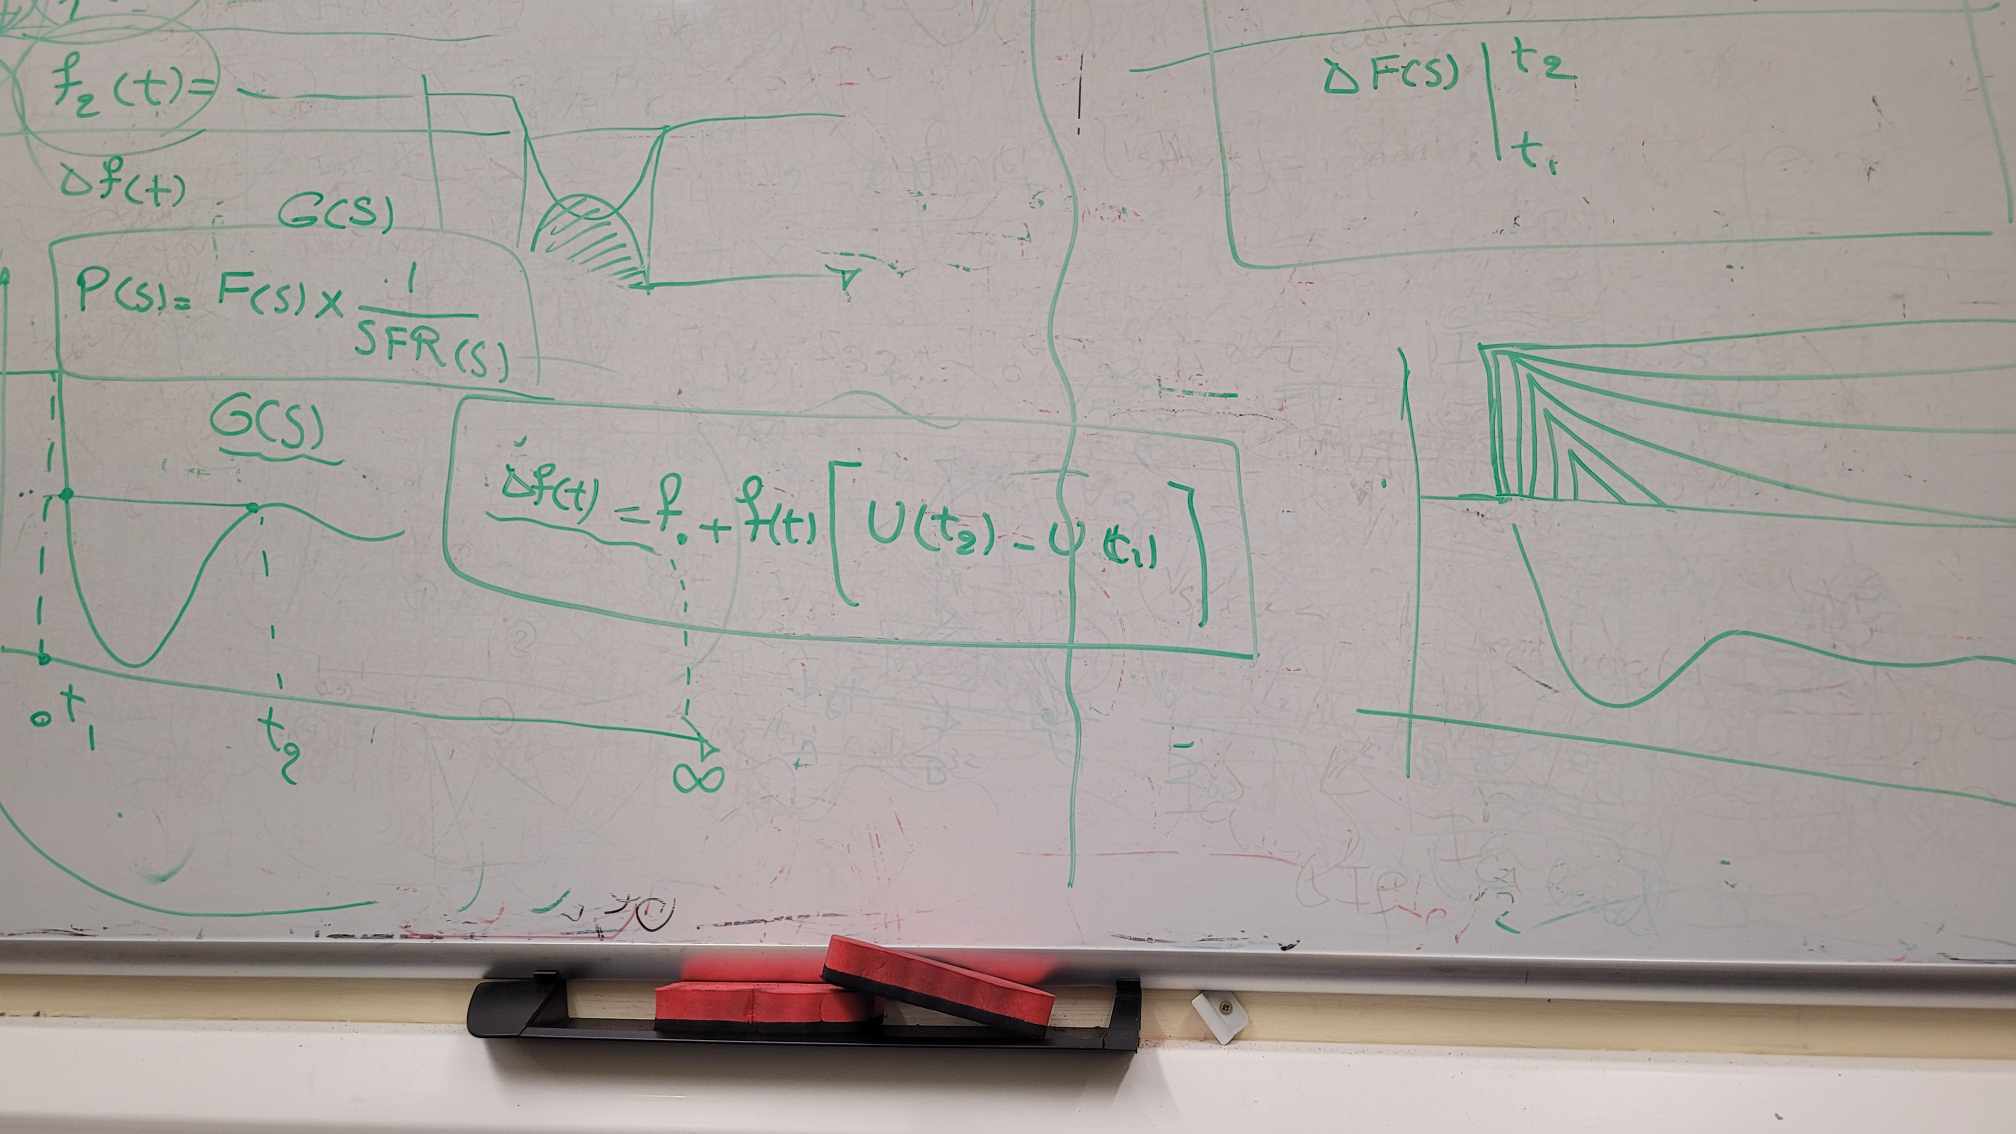 f₂(t)=
Δf(t)
G(S)
P(S)= F(S) × 1/SFR(S)
G(S)
Δf(t) = f. + f(t) [ U(t₂) - U(t₁) ]
0 t₁
t₂
∞
ΔF(S) | t₂
t₁